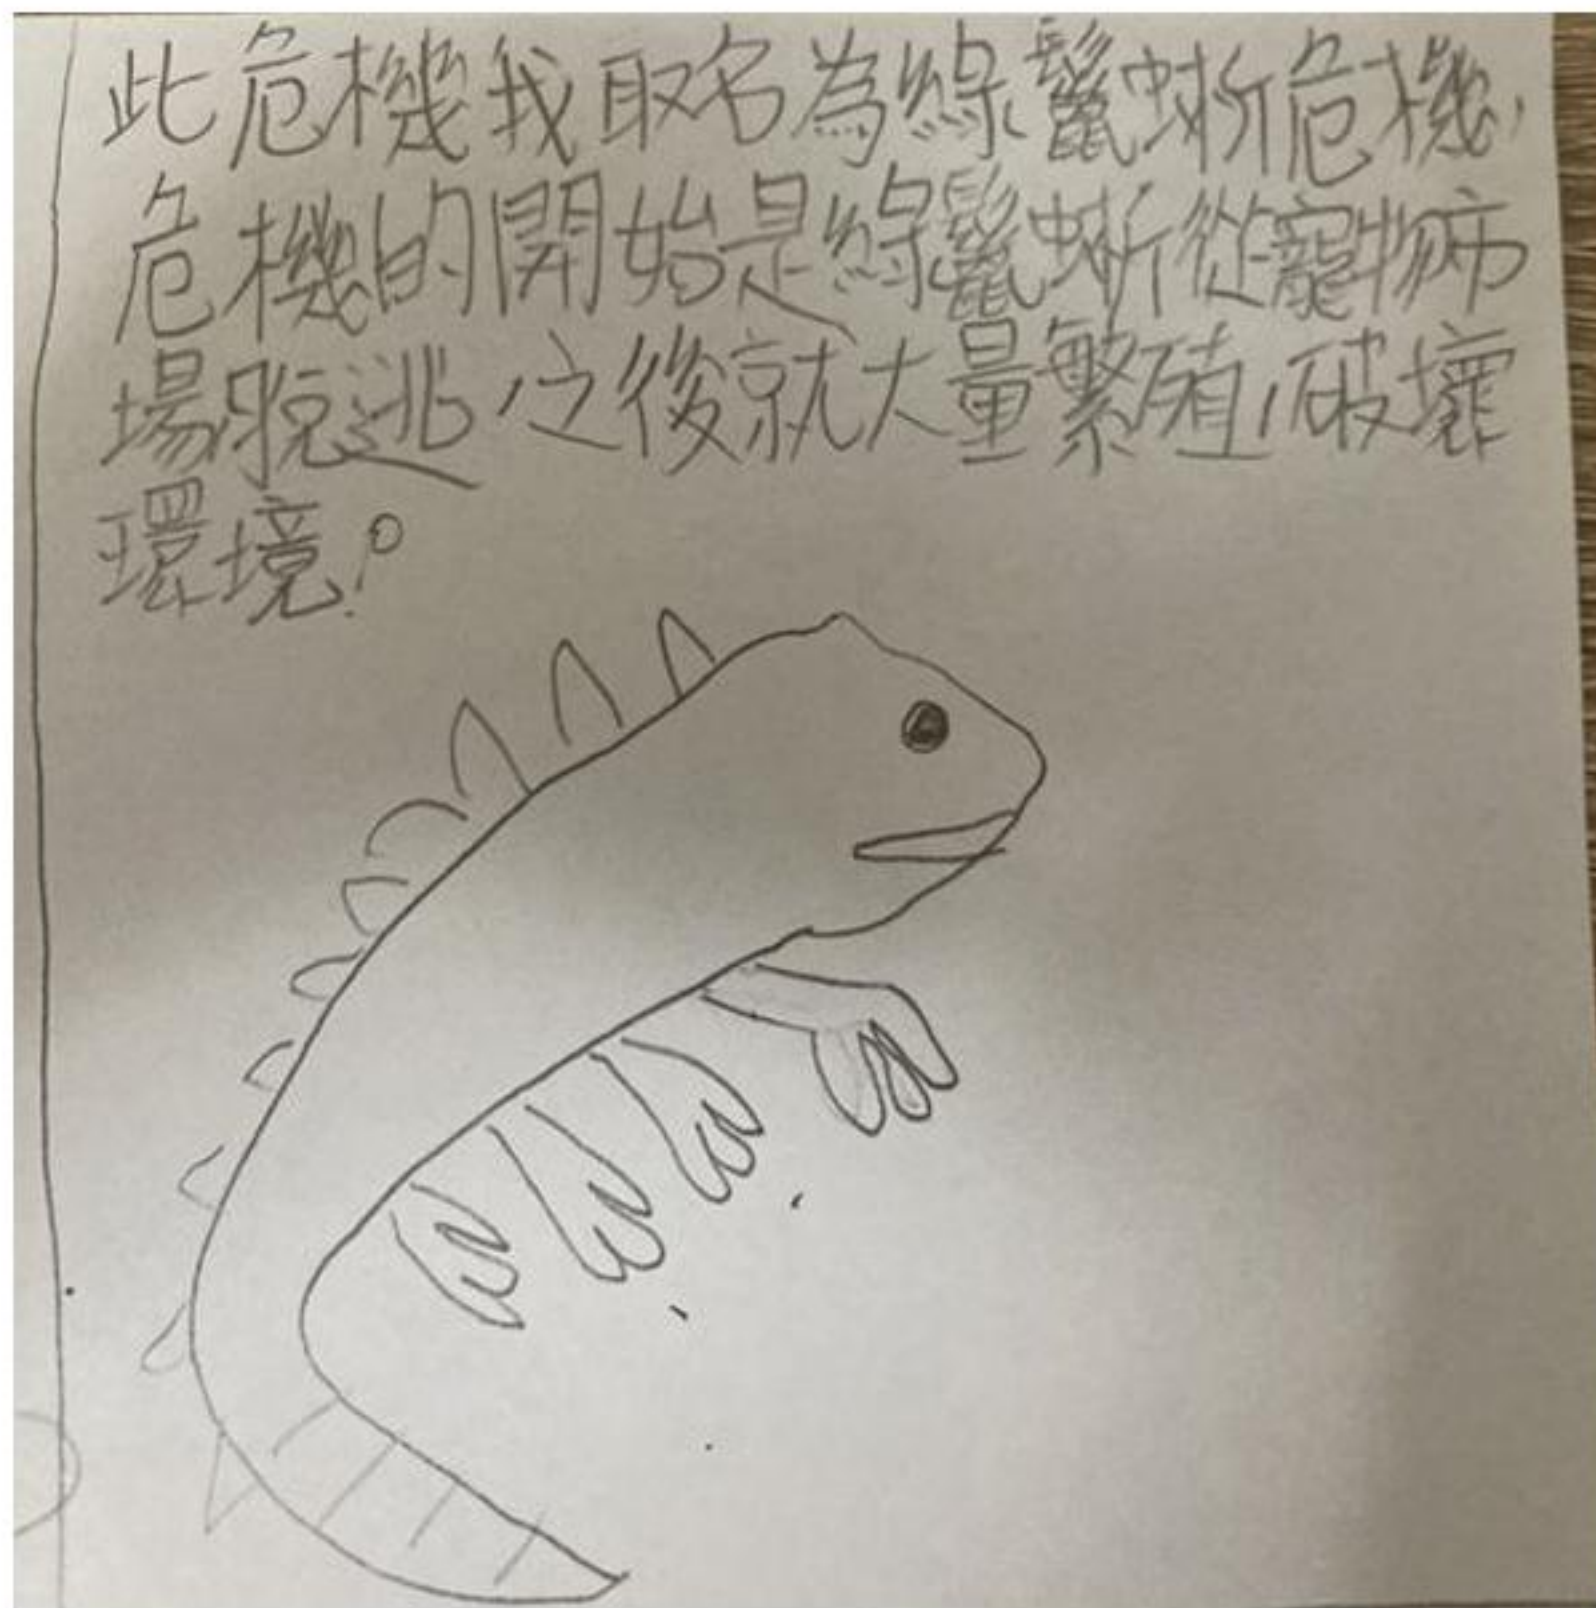 此危機我取名為綠鬣蜥危機，
危機的開始是綠鬣蜥從寵物市
場脫逃，之後就大量繁殖，破壞
環境。